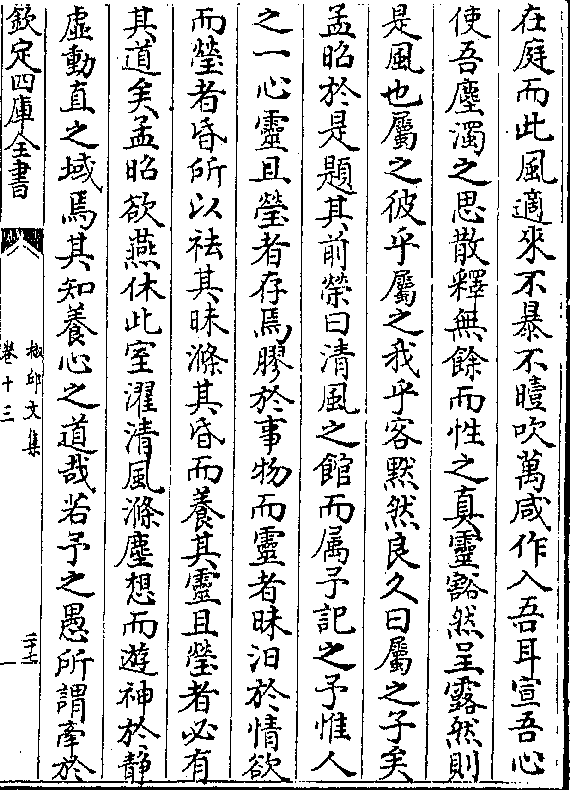 在庭而此風適來不暴不曀吹萬咸作入吾耳宣吾心
使吾塵濁之思散釋無餘而性之真靈豁然呈露然則
是風也屬之彼乎屬之我乎客黙然良久曰屬之子矣
孟昭於是題其前榮曰清風之館而属予記之予惟人
之一心靈且瑩者存焉膠於事物而靈者昧汩於情欲
而瑩者昏所以祛其昧滌其昏而養其靈且瑩者必有
其道矣孟昭欲燕休此室濯清風滌塵想而遊神於静
虚動直之域焉其知養心之道哉若予之愚所謂牽於
欽定四庫全書
椒邱文集
卷十三